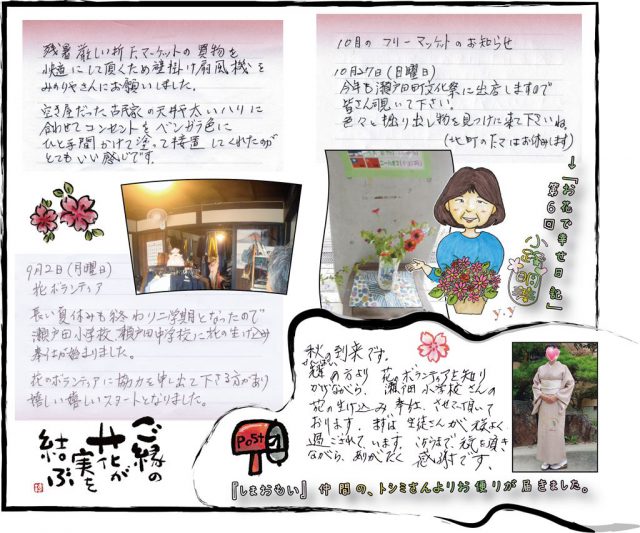 残暑厳しい折 F.マーケットの買物を
快適にして頂くため壁掛け扇風機を
みのりやさんにお願いしました。
空き屋だった古民家の天井や太いハリに
合わせてコンセントをベンガラ色に
ひと手間かけて塗って接置してくれたのが
とてもいい感じです。
9月2日(月曜日)
花ボランティア
長い夏休みも終わり二学期となったので
瀬戸田小学校、瀬戸田中学校に花の生け込み
奉仕が始まりました。
花のボランティアに協力を申し出て下さる方があり
嬉しい嬉しいスタートとなりました。
ご縁の
花が
実を
結ぶ
10月のフリーマッケットのお知らせ
10月27日(日曜日)
今年も瀬戸田町文化祭に出店しますので
皆さん覗いて下さい。
色々と掘り出し物を見つけに来て下さいね。
(北町のF.マはお休みします)
→「お花で幸せ日記」
第6回
小路明琴
y.y
秋の到来です。
先輩の方より 花のボランティアを知り
かげながら、瀬戸田小学校さんの
花の生け込み、奉仕、させて頂いて
おります。まずは生徒さんが、元気よく
過ごされています。こちらまで元気を頂き
ながら、ありがたく 感謝です。
POST
『しまおもい』仲間の、トシミさんよりお便りが届きました。